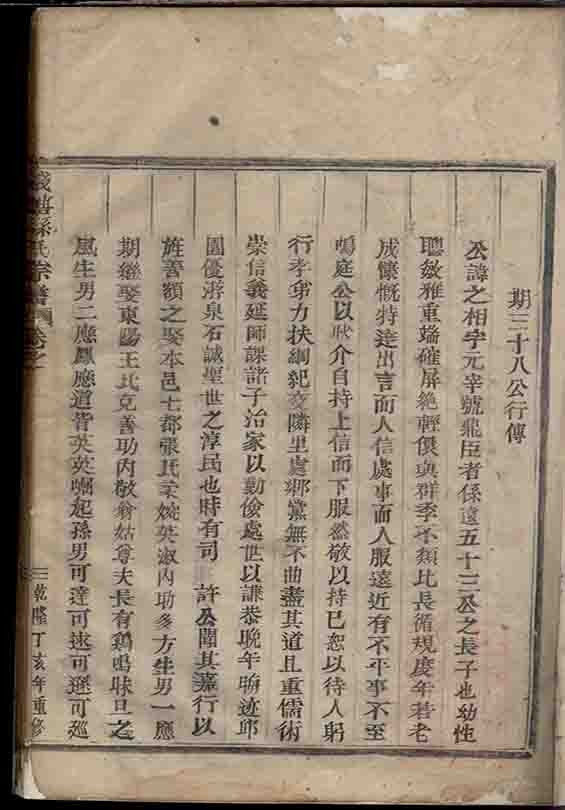 期三十八公行傳
公諱之相字元宰號鼎臣者係遠五十三公之長子也幼性
聰敏雅重端確屏絶輕儇與群季不類比長循規度年若老
成慷慨特達出言而人信處事而人服遠近有不平事不至
鳴庭公以耿介自持上信而下服然敬以持己恕以待人躬
行孝弟力扶綱紀交隣里處鄉黨無不曲盡其道且重儒術
崇信義延師課諸子治家以勤儉處世以謙恭晚年晦迹邱
園優游泉石誠聖世之淳民也時有司 許公聞其嘉行以
旌善額之娶本邑七都張氏柔婉英淑內助多方生男一應
期繼娶東陽王氏克善功內敬翁姑尊夫長有鷄鳴昧旦之
風生男二應鳳應道皆英英崛起孫男可達可述可遜可巡
孫氏宗譜 卷之
乾隆丁亥年重修